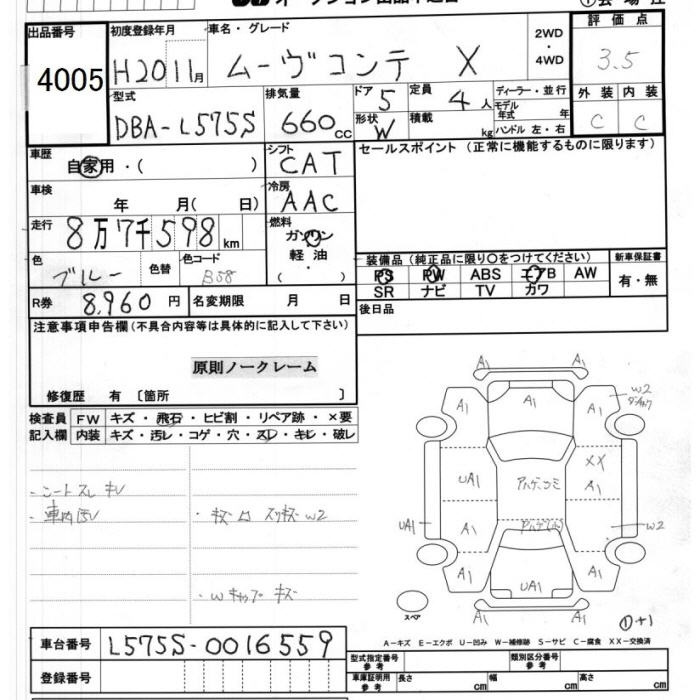 出品番号
4005
初度登録年月
H20 11月
車名・グレード
ムーヴコンテ X
2WD
・
4WD
評価点
3.5
外装 内装
C C
型式
DBA-L575S
排気量
660cc
ドア 5
形状 W
定員 4人
積載 kg
ディーラー・並行
モデル年式 年
ハンドル 左・右
車歴
自家用・( )
シフト
CAT
セールスポイント (正常に機能するものに限ります)
車検
年 月( 日)
冷房
AAC
走行
8万7千598km
燃料
ガソリン
軽油
・
( )
色
ブルー
色替
色コード
B58
装備品(純正品に限り○をつけてください)
新車保証書
PS PW ABS エアB AW
有・無
SR ナビ TV カワ
R券 8,960円
名変期限 月 日
後日品
注意事項申告欄(不具合内容等は具体的に記入して下さい)
原則ノークレーム
修復歴 有 [箇所 ]
検査員
記入欄
FW キズ・飛石・ヒビ割・リペア跡・×要
内装 キズ・汚レ・コゲ・穴・スレ・キレ・破レ
・シートスレ キレ
・車内汚レ
・キズ 凹 スリキズ W2
・Wキャップ キズ
A1 A1
A1 A1 A1 W2
UA1 XX
A1
UA1 A1 W2
A1 UA1 A1
A1 A1
スペア
①+1
A-キズ E-エクボ U-凹み W-補修跡 S-サビ C-腐食 XX-交換済
車台番号
L575S-0016559
登録番号
型式指定番号
参考
類別区分番号
参考
車庫証明用
参考
長さ cm 幅 cm 高さ cm